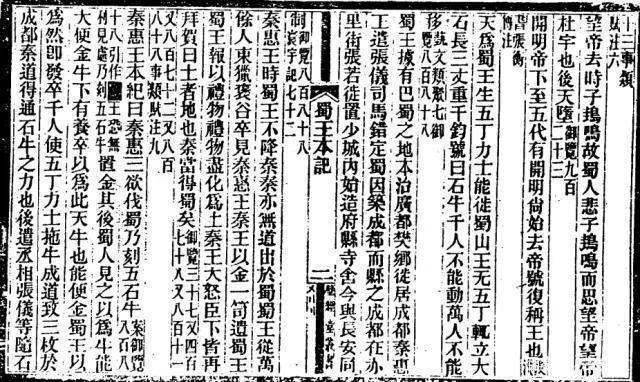 十三事類賦注六
望帝去時子搗鳴故蜀人悲子搗鳴而思望帝望帝
杜宇也後天墮御覽九百二十三
開明帝下至五代有開明尙始去帝號復稱王也
書張衡傳注
天爲蜀王生五丁力士能徙蜀山王无五丁輒立大
石長三丈重千鈞號曰石牛千人不能動萬人不能
移藝文類聚七御覽八百八十八
蜀王據有巴蜀之地本治廣都樊鄉徙居成都秦惠
王遣張儀司馬錯定蜀因築成都而縣之成都在赤
里街張若徙置少城內始造府縣寺舍令與長安同
制御覽八百八十八寰宇記七十二
蜀王本記
二
秦惠王時蜀王不降秦秦亦無道出於蜀蜀王從萬
餘人東獵褒谷卒見秦惠王秦王以金一笥遺蜀王
蜀王報以禮物禮物盡化爲土秦王大怒臣下皆再
拜賀曰土者地也秦當得蜀矣御覽三十七又四百七十八又八百一十一
又八百七十二又八百八十八事類賦注九
秦惠王本紀曰秦惠王欲伐蜀乃刻五石牛案御覽八百八
十八引作王恐無相見處乃刻五石牛置金其後蜀人見之以爲牛能
大便金牛下有養卒以爲此天牛也能便金蜀王以
爲然卽發卒千人使五丁力士拖牛成道致三枚於
成都秦道得通石牛之力也後遣丞相張儀等隨石